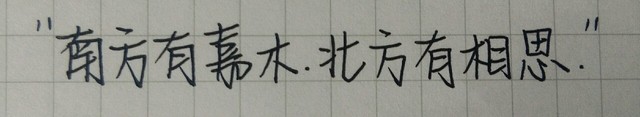 "南方有嘉木.北方有相思."